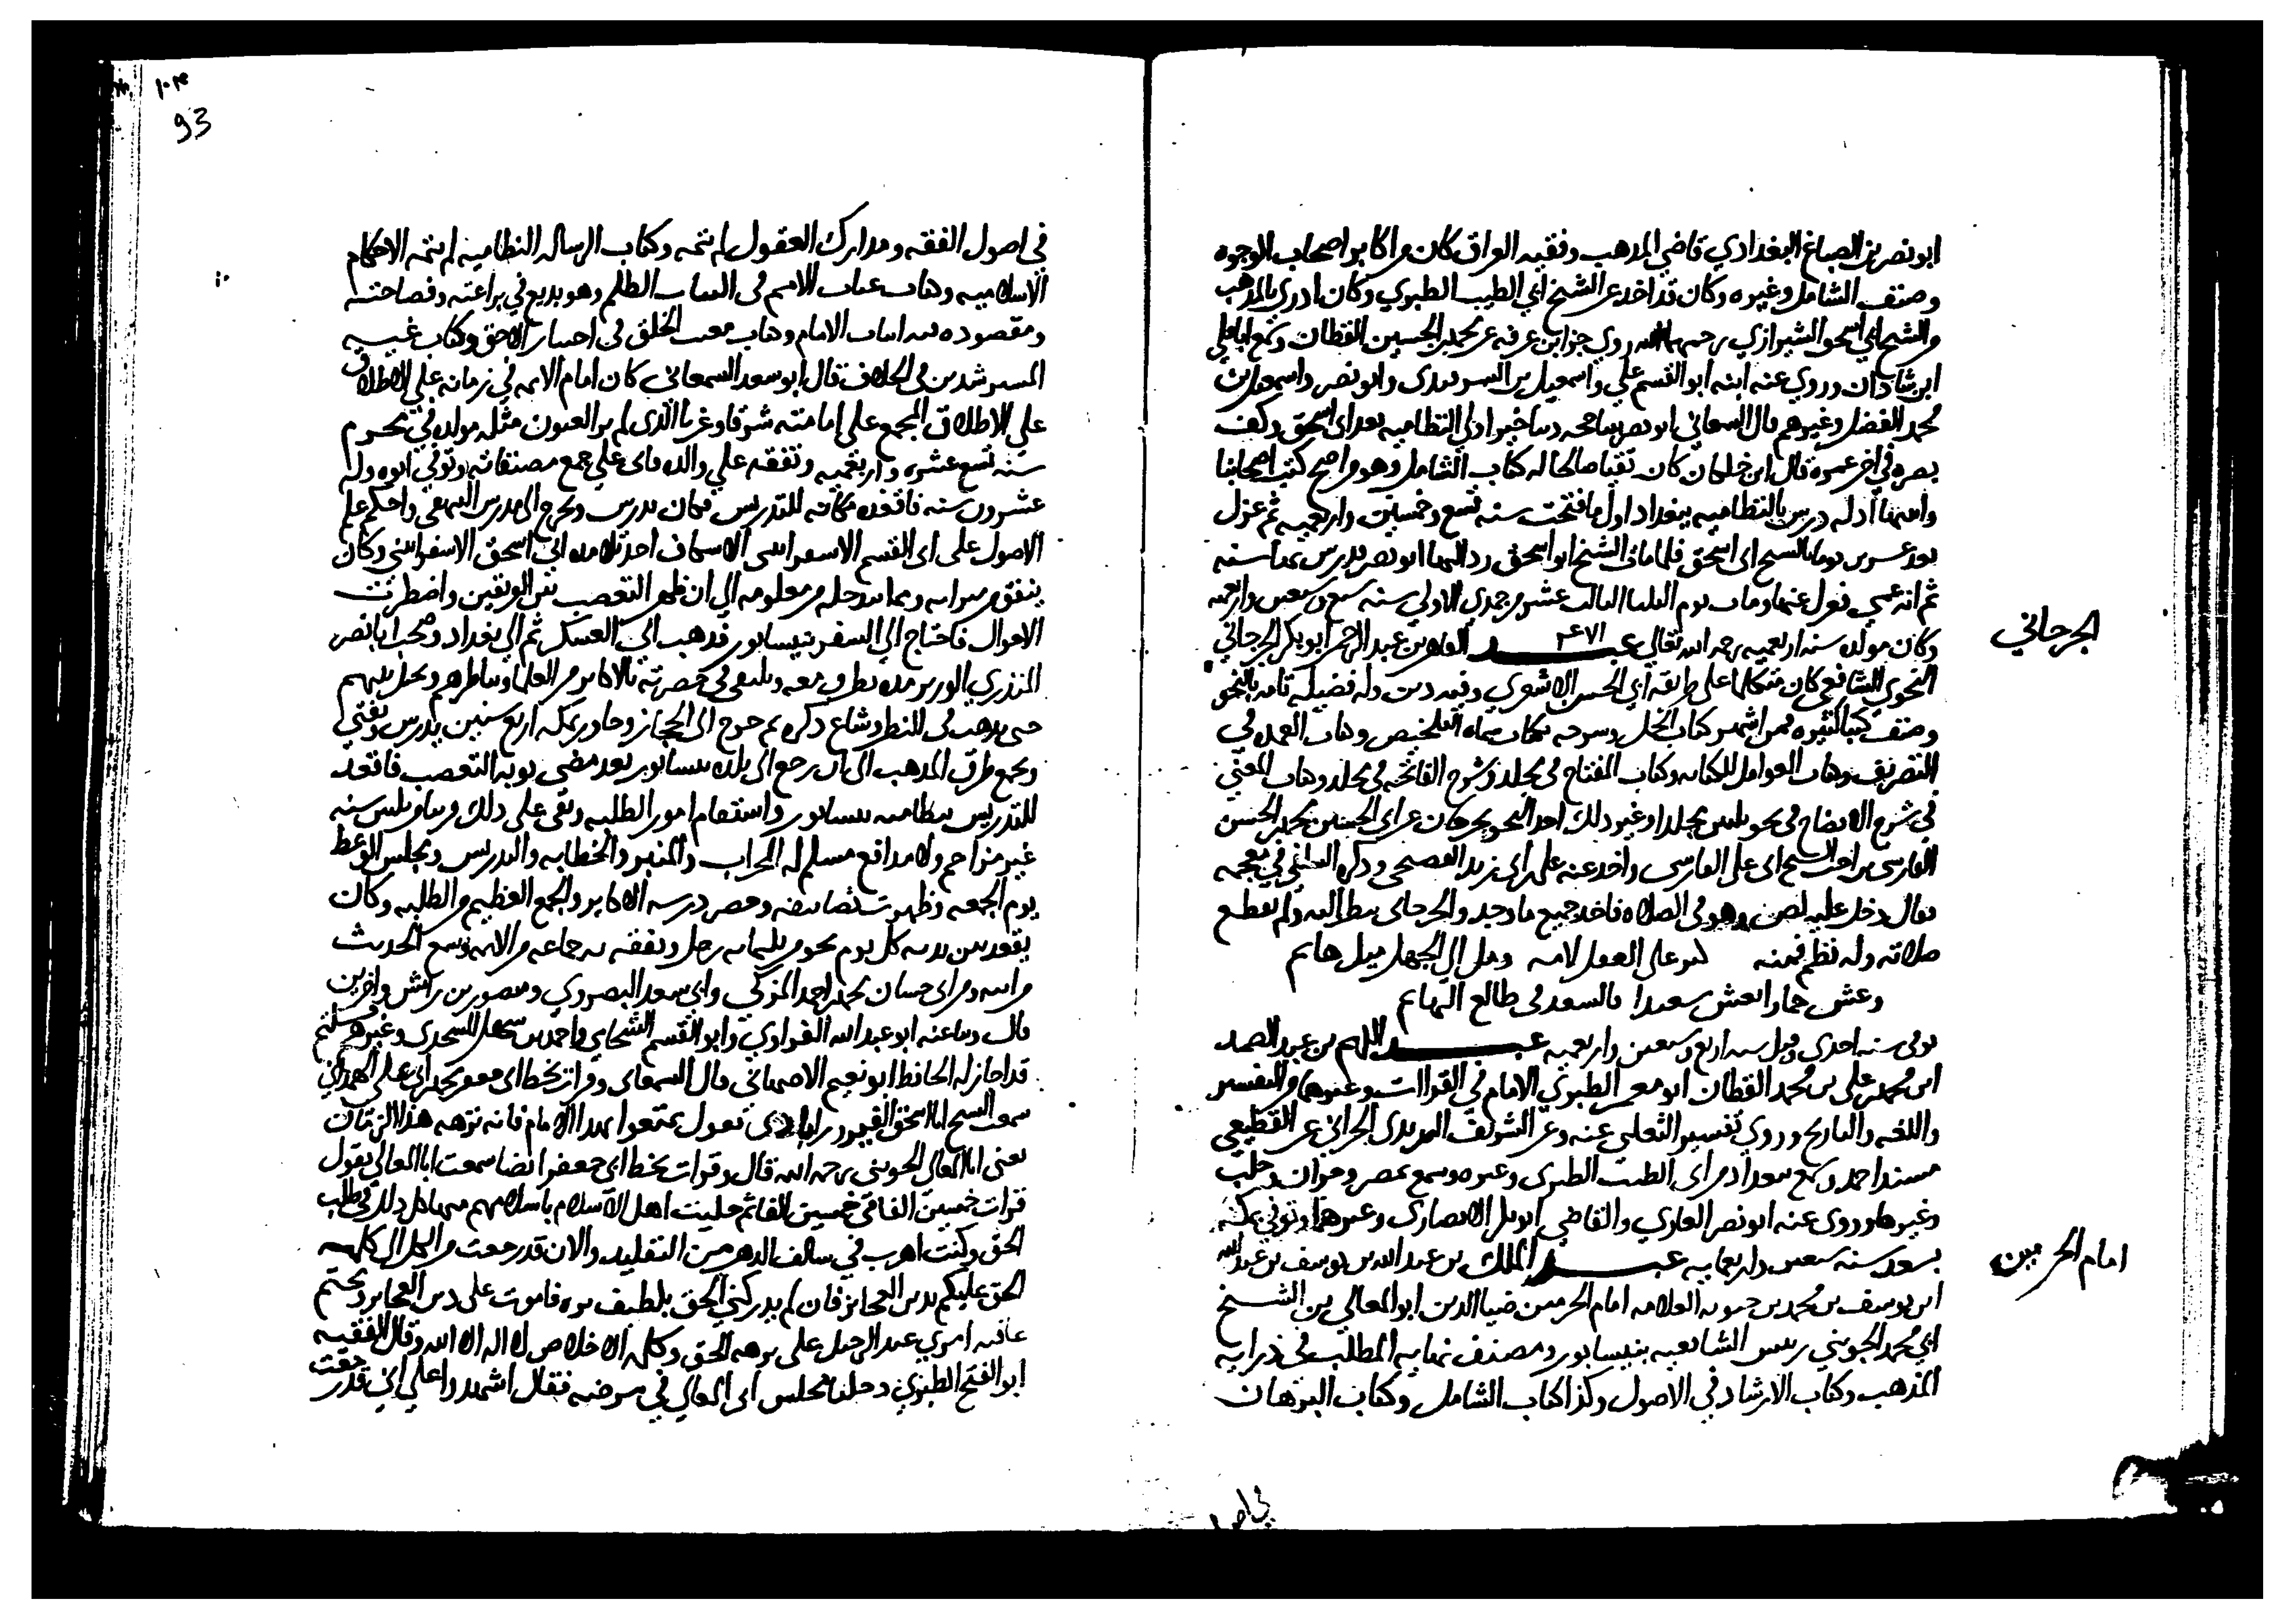 ابو نصر بن الصباغ البغدادي قاضي المذهب وفقيه العراق كان من اكابر اصحاب الوجوه
وصنف الشامل وغيره وكان قد اخذ عن الشيخ ابي الطيب الطبري وكان ادرى بالمذهب
من الشيخ ابي اسحق الشيرازي رحمهما الله روي جزا بن عرفه عن محمد بن الحسين القطان وسمع ابا علي
ابن شاذان وروي عنه ابنه ابو القسم علي واسمعيل بن السمرقندي وابو نصر واسمعيل بن
محمد الفضل وغيرهم قال السمعاني ابو نصر
بصره في اخر عمره قال ابن خلكان كان تقيا صالحا له كتاب الشامل وهو من اصح كتب اصحابنا
واثبتها ادله درس بالنظاميه ببغداد اول ما فتحت سنه تسع وخمسين واربعميه ثم عزل
بعد عسرين يوما بالسيح ابي اسحق فلما مات الشيخ ابو اسحق رد اليها ابو نصر يدرس بها سنه
ثم انه عمي فعزل عنها ومات يوم الثلثا الثالث عشر من جمدي الاولي سنه سبع وسبعين واربعميه
وكان مولده سنه اربعميه رحمه الله تعالي عبد القاهر بن عبد الرحمن ابو بكر الجرجاني
٤٧١
الجرجاني
النحوي الشافعي كان متكلما علي طريقه ابي الحسن الاشعري وفيه دين وله فضيله تامه بالنحو
وصنف كتبا كثيره فمن اشهرها كتاب الجمل وشرحه بكتاب سماه التلخيص وكتاب العمده في
التصريف وكتاب العوامل المايه وكتاب المفتاح في مجلد وشرح الفاتحه في مجلد وكتاب المغني
في شرح الايضاح في نحو ثلثين مجلدا وغير ذلك اخذ النحو بجرجان عن ابي الحسين محمد بن الحسن
الفارسي بن اخت الشيخ ابي علي الفارسي واخذ عنه علي بن ابي زيد الفصيحي وذكره السلفي في معجمه
فقال دخل عليه لص وهو في الصلاه فاخذ جميع ما وجد والجرجاني ينظر اليه ولم يقطع
صلاته وله نظم فمنه كبر على العقل لا ترمه ومل الي الجهل ميل هايم
وعش حمارا تعش سعيدا فالسعد في طالع البهايم
توفي سنه احدي وقيل سنه اربع وسبعين واربعميه عبد الكريم بن عبد الصمد
ابن محمد بن علي بن محمد القطان ابو معشر الطبري الامام في القراات وغيرها من التفسير
واللغه والتاريخ وروي تفسير الثعلبي عنه وعن الشريف الزيدي الحراني عن القطيعي
مسند احمد وسمع ببغداد من ابي الطيب الطبري وغيره وسمع بمصر وحران وحلب
وغيرها وروي عنه ابو نصر الغازي والقاضي ابو بكر الانصاري وغيرهما وتوفي بمكه
بعد سنه سبعين واربعمايه عبد الملك بن عبد الله بن يوسف بن عبد الله
امام الحرمين
ابن يوسف بن محمد بن حيويه العلامه امام الحرمين ضيا الدين ابو المعالي بن الشيخ
ابي محمد الجويني رييس الشافعيه بنيسابور ومصنف نهايه المطلب في درايه
المذهب وكتاب الارشاد في الاصول وكذا كتاب الشامل وكتاب البرهان
في اصول
١٠٣
93
في اصول الفقه ومدارك العقول لم يتمه وكتاب الرساله النظاميه لم يتمه الاحكام
الاسلاميه وكتاب غياث الامم في التياث الظلم وهو بديع في براعته وفصاحته
ومقصوده به اثبات الامام وكتاب مغيث الخلق في اختيار الاحق وكتاب غنيه
المسترشدين في الخلاف قال ابو سعد السمعاني كان امام الايمه في زمانه علي الاطلاق
علي الاطلاق المجمع علي امامته شرقا وغربا الذي لم ير العيون مثله مولده في محرم
سنه تسع عشره واربعميه وتفقه علي والده فاتي علي جميع مصنفاته وتوفي ابوه وله
عشرون سنه فاقعد مكانه للتدريس فكان يدرس ويخرج الي مدرس البيهقي واحكم علم
الاصول علي ابي القسم الاسفرايني الاسكاف احد تلامذه ابي اسحق الاسفرايني وكان
ينفق من ميراثه ومما يدخله من معلومه الي ان ظهر التعصب بين الفريقين واضطربت
الاحوال فاحتاج الي السفر بنيسابور فذهب الي العسكر ثم الي بغداد وصحب ابا نصر
الكندري الوزير مده يطوف معه ويلتقي في حضرته بالاكابر من العلما ويناظرهم ويحتك بهم
حتي تهذب في النظر وشاع ذكره ثم خرج الي الحجاز وجاور بمكه اربع سنين يدرس ويفتي
ويجمع طرق المذهب الي ان رجع الي بلده نيسابور بعد مضي نوبه التعصب فاقعد
للتدريس بنظاميه نيسابور واستقام امور الطلبه وبقي علي ذلك قريبا من ثلثين سنه
غير مزاحم ولا مدافع مسلم له المحراب والمنبر والخطابه والتدريس ومجلس الوعظ
يوم الجمعه وظهرت تصانيفه وحضر درسه الاكابر والجمع العظيم من الطلبه وكان
يقعد بين يديه كل يوم نحو من ثلثمايه رجل وتفقه به جماعه من الايمه وسمع الحديث
من ابيه ومن ابي حسان محمد بن احمد المزكي وابي سعد النصروي ومنصور بن رامش واخرين
قال وثنا عنه ابو عبد الله الفراوي وابو القسم الشحامي واحمد بن سهل المسجدي وغيرهم
قد اجاز له الحافظ ابو نعيم الاصبهاني قال السمعاني وقرات بخط ابي جعفر محمد بن ابي علي الهمداني
سمعت الشيخ ابا اسحق الفيروزابادي يقول تمتعوا بهذا الامام فانه نزهه هذا الزمان
يعني ابا المعالي الجويني رحمه الله قال وقرات بخط ابي جعفر ايضا سمعت ابا المعالي يقول
قرات خمسين الفا في خمسين الفا ثم خليت اهل الاسلام باسلامهم فيها كل ذلك في طلب
الحق وكنت اهرب في سالف الدهر من التقليد والان قد رجعت من الكل الي كلمه
الحق عليكم بدين العجايز فان لم يدركني الحق بلطيف بره فاموت علي دين العجايز ويختم
عاقبه امري عند الرحيل علي نزهه الحق وكلمه الاخلاص لا اله الا الله وقال الفقيه
ابو الفتح الطبري دخلنا مجلس ابي المعالي في مرضه فقال اشهدوا علي اني قد رجعت